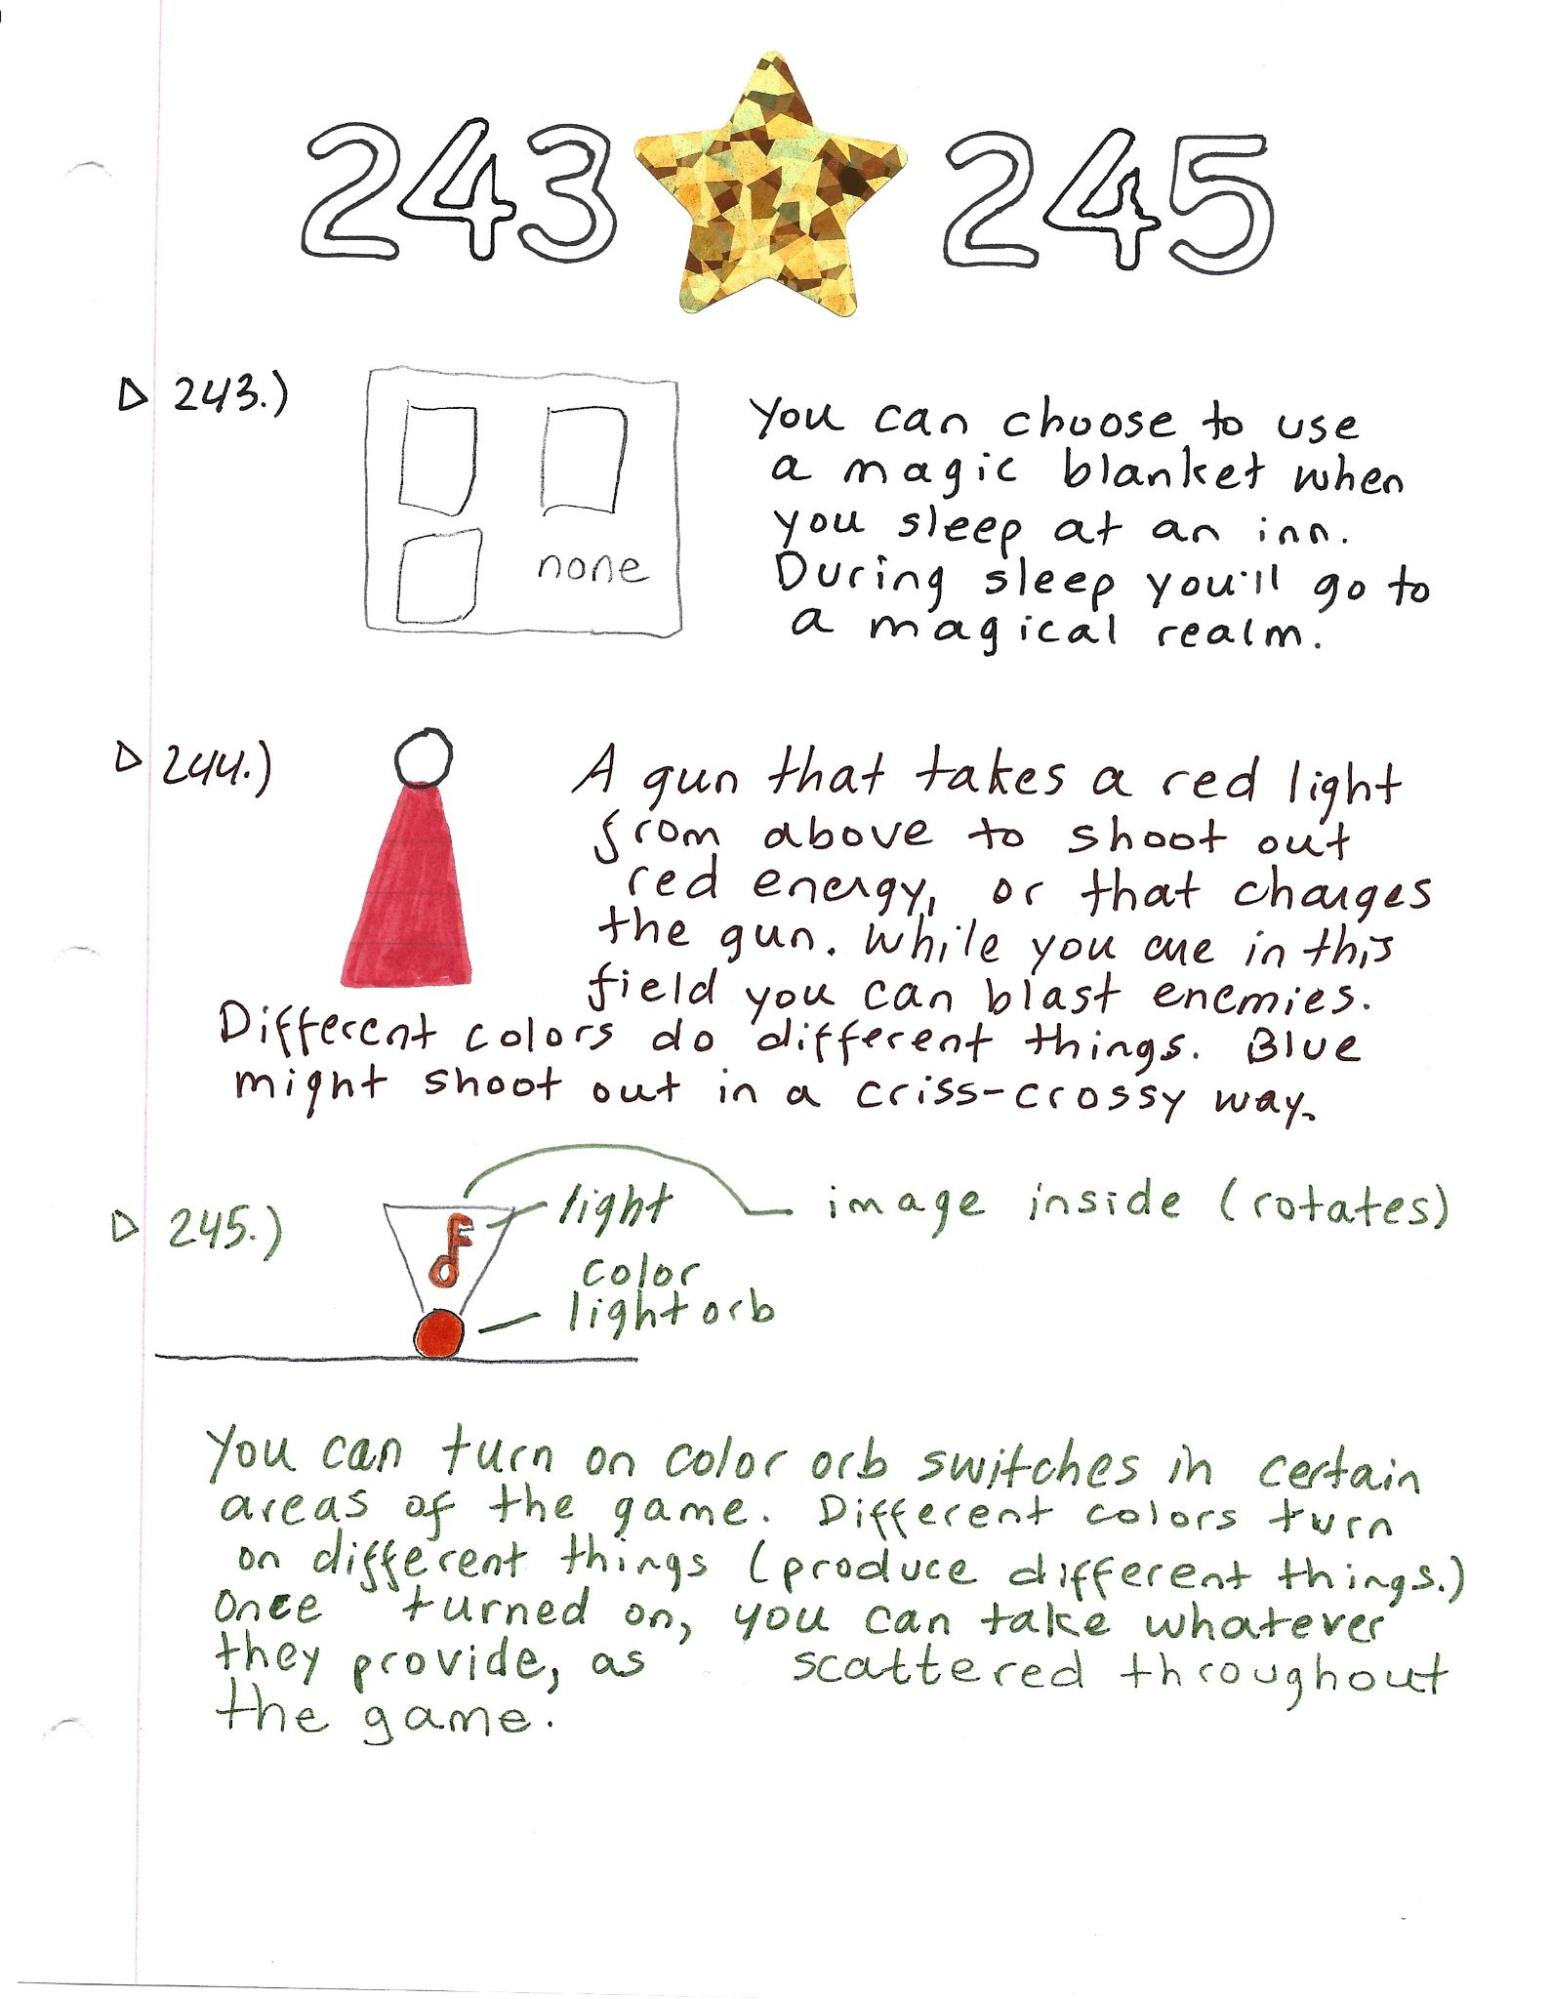 243 245
243.)
none
You can choose to use
a magic blanket when
you sleep at an inn.
During sleep you'll go to
a magical realm.
244.)
A gun that takes a red light
from above to shoot out
red energy, or that charges
the gun. While you are in this
field you can blast enemies.
Different colors do different things. Blue
might shoot out in a criss-crossy way.
245.)
light
image inside (rotates)
color
light orb
You can turn on color orb switches in certain
areas of the game. Different colors turn
on different things (produce different things.)
Once turned on, you can take whatever
they provide, as scattered throughout
the game.